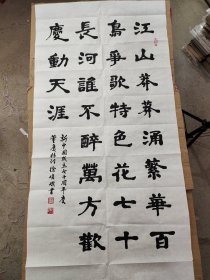 江山莽莽涌繁華百
鳥爭歌特色花七十
長河誰不醉萬方歡
慶動天涯
新中国成立七十周年慶